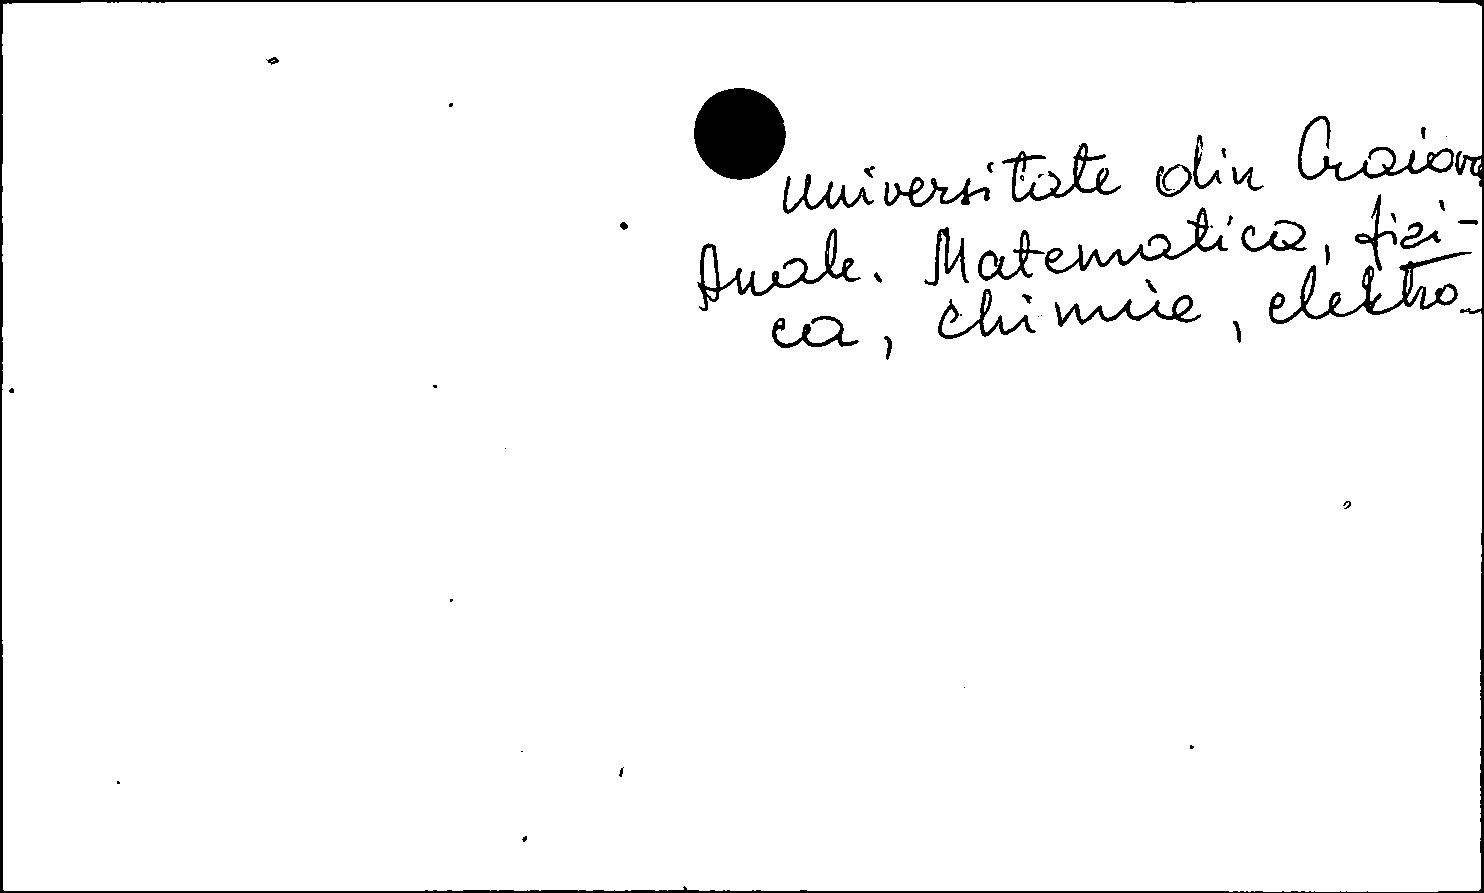 Universitate din Craiova
Anale. Matematica, fizi-
ca, chimie, elektro-